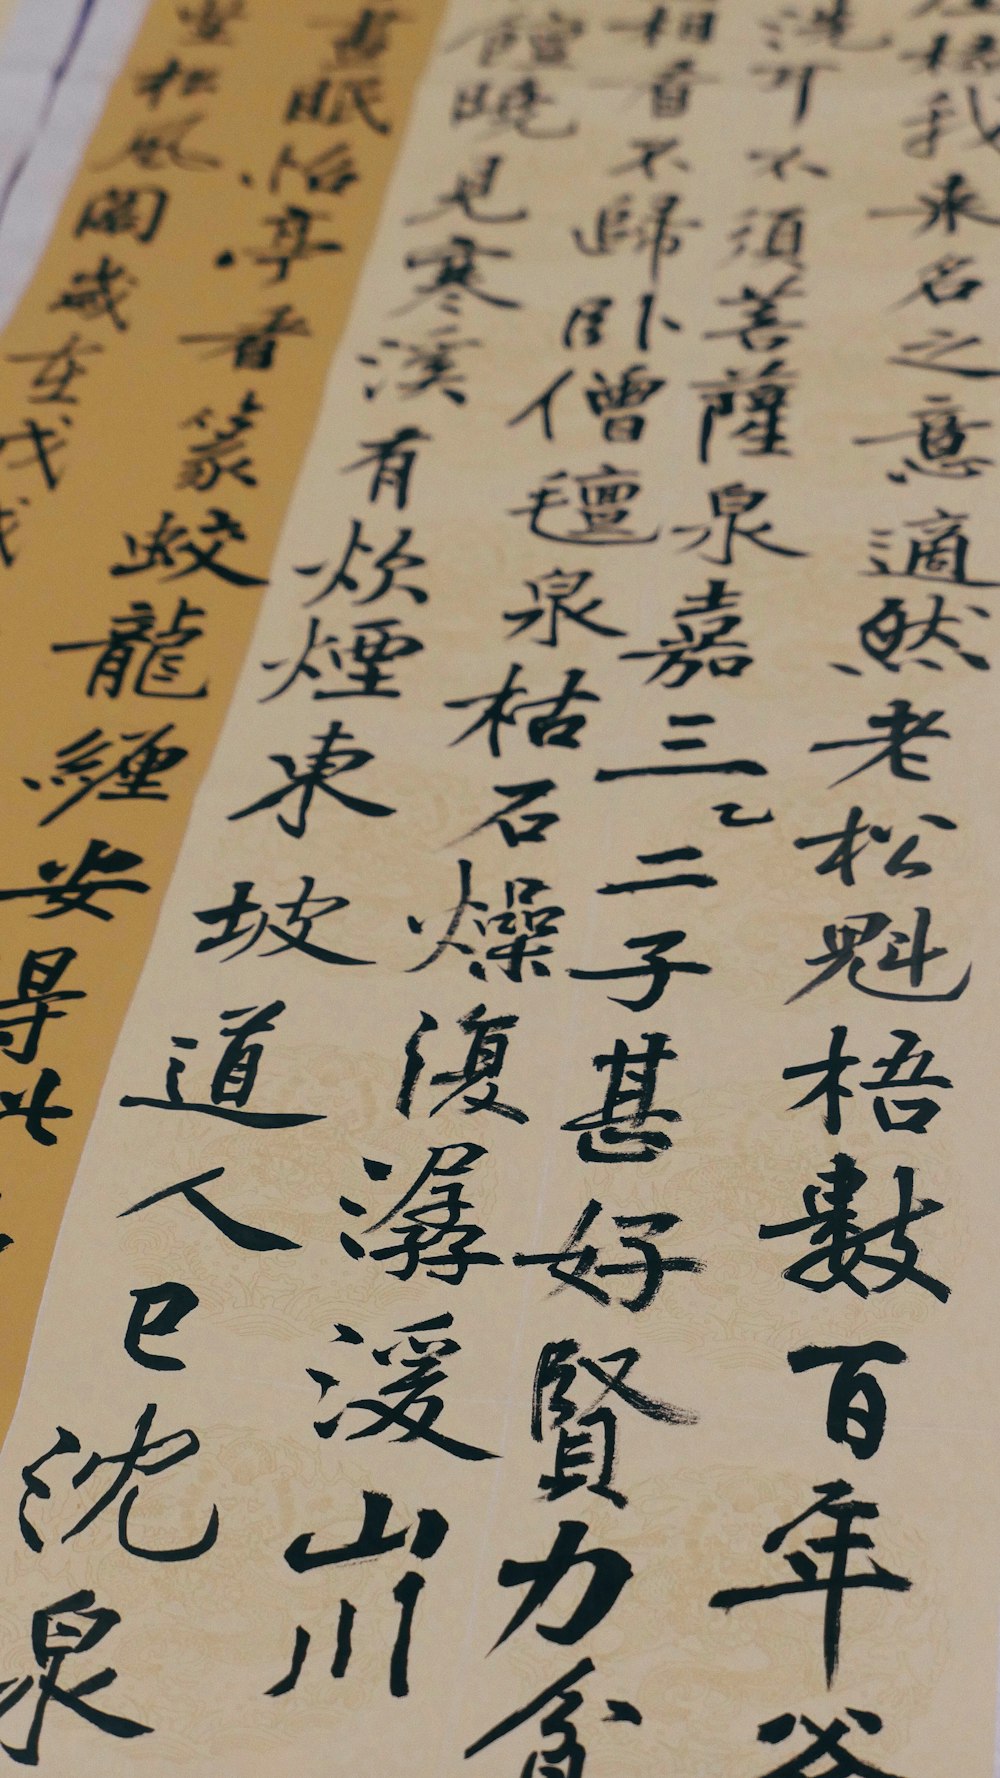 椽我來名之意適然老松魁梧數百年斧
洗耳不須菩薩泉嘉三乙二子甚好賢力貧
相看不歸臥僧氈泉枯石燥復潺湲山川
饘曉見寒溪有炊煙東坡道人已沈泉
晝眠怡亭看篆蛟龍纏安得此
松風閣歲在戊戌